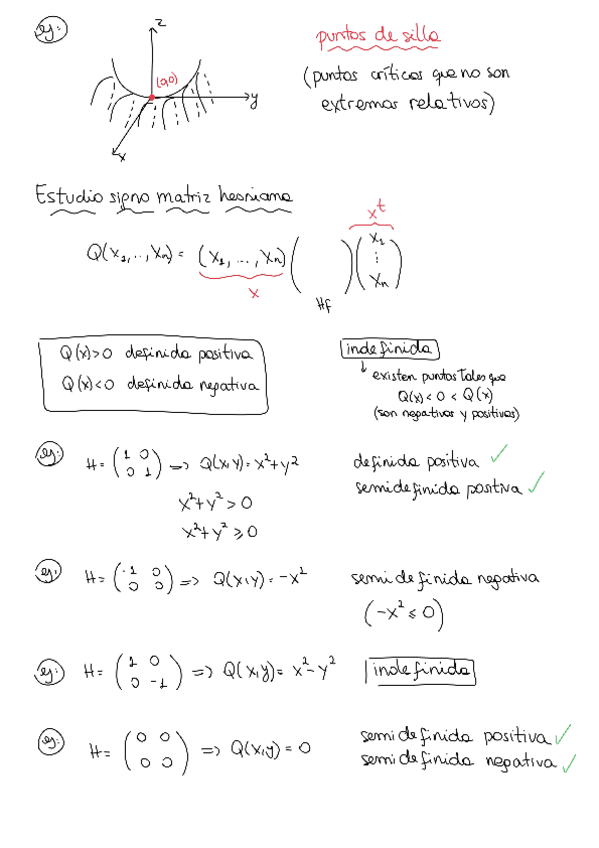 ej:
z
puntos de silla
(0,0)
(puntos críticos que no son
extremos relativos)
y
x
Estudio signo matriz hessiana
x^t
Q(x₁, .., xₙ) = (x₁, ..., xₙ) ( ) (x₁ ⋮ xₙ)
x
Hf
Q(x)>0 definida positiva
Q(x)<0 definida negativa
indefinida
↓ existen puntos tales que
Q(x) < 0 < Q(x)
(son negativos y positivos)
ej: H = (1 0 0 1) => Q(x,y) = x²+y² definida positiva ✓
semidefinida positiva ✓
x²+y² > 0
x²+y² ⩾ 0
ej: H = (-1 0 0 0) => Q(x,y) = -x² semidefinida negativa
(-x² ⩽ 0)
ej: H = (1 0 0 -1) => Q(x,y) = x²-y² indefinida
ej: H = (0 0 0 0) => Q(x,y) = 0 semidefinida positiva ✓
semidefinida negativa ✓